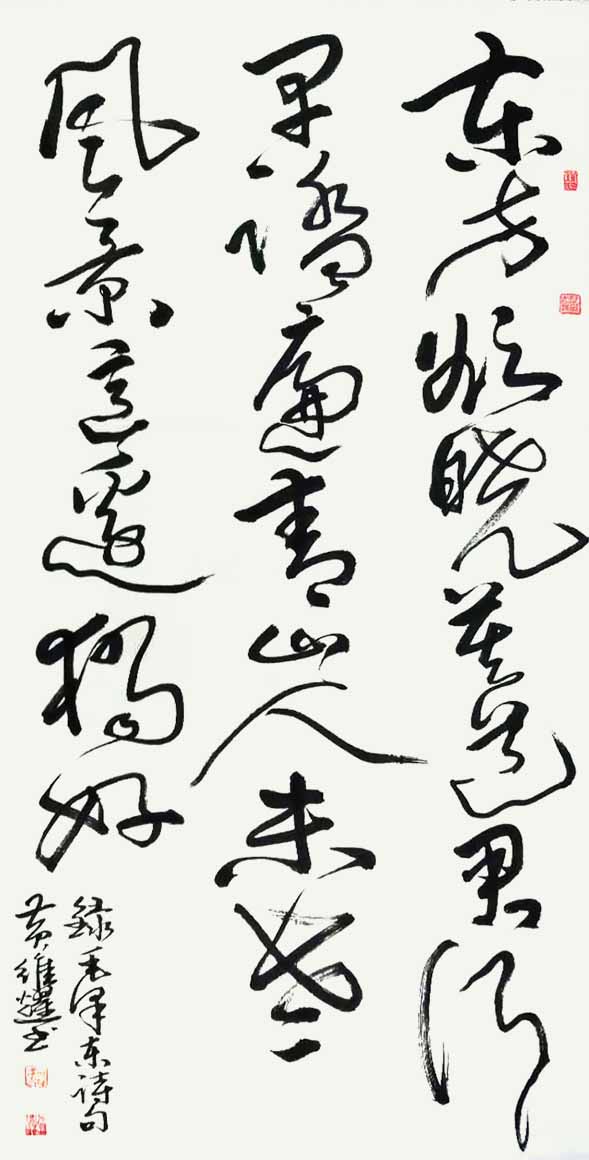 东方欲晓莫道君行
早踏遍青山人未老
風景這邊獨好
録毛泽东诗句
黄維耀书